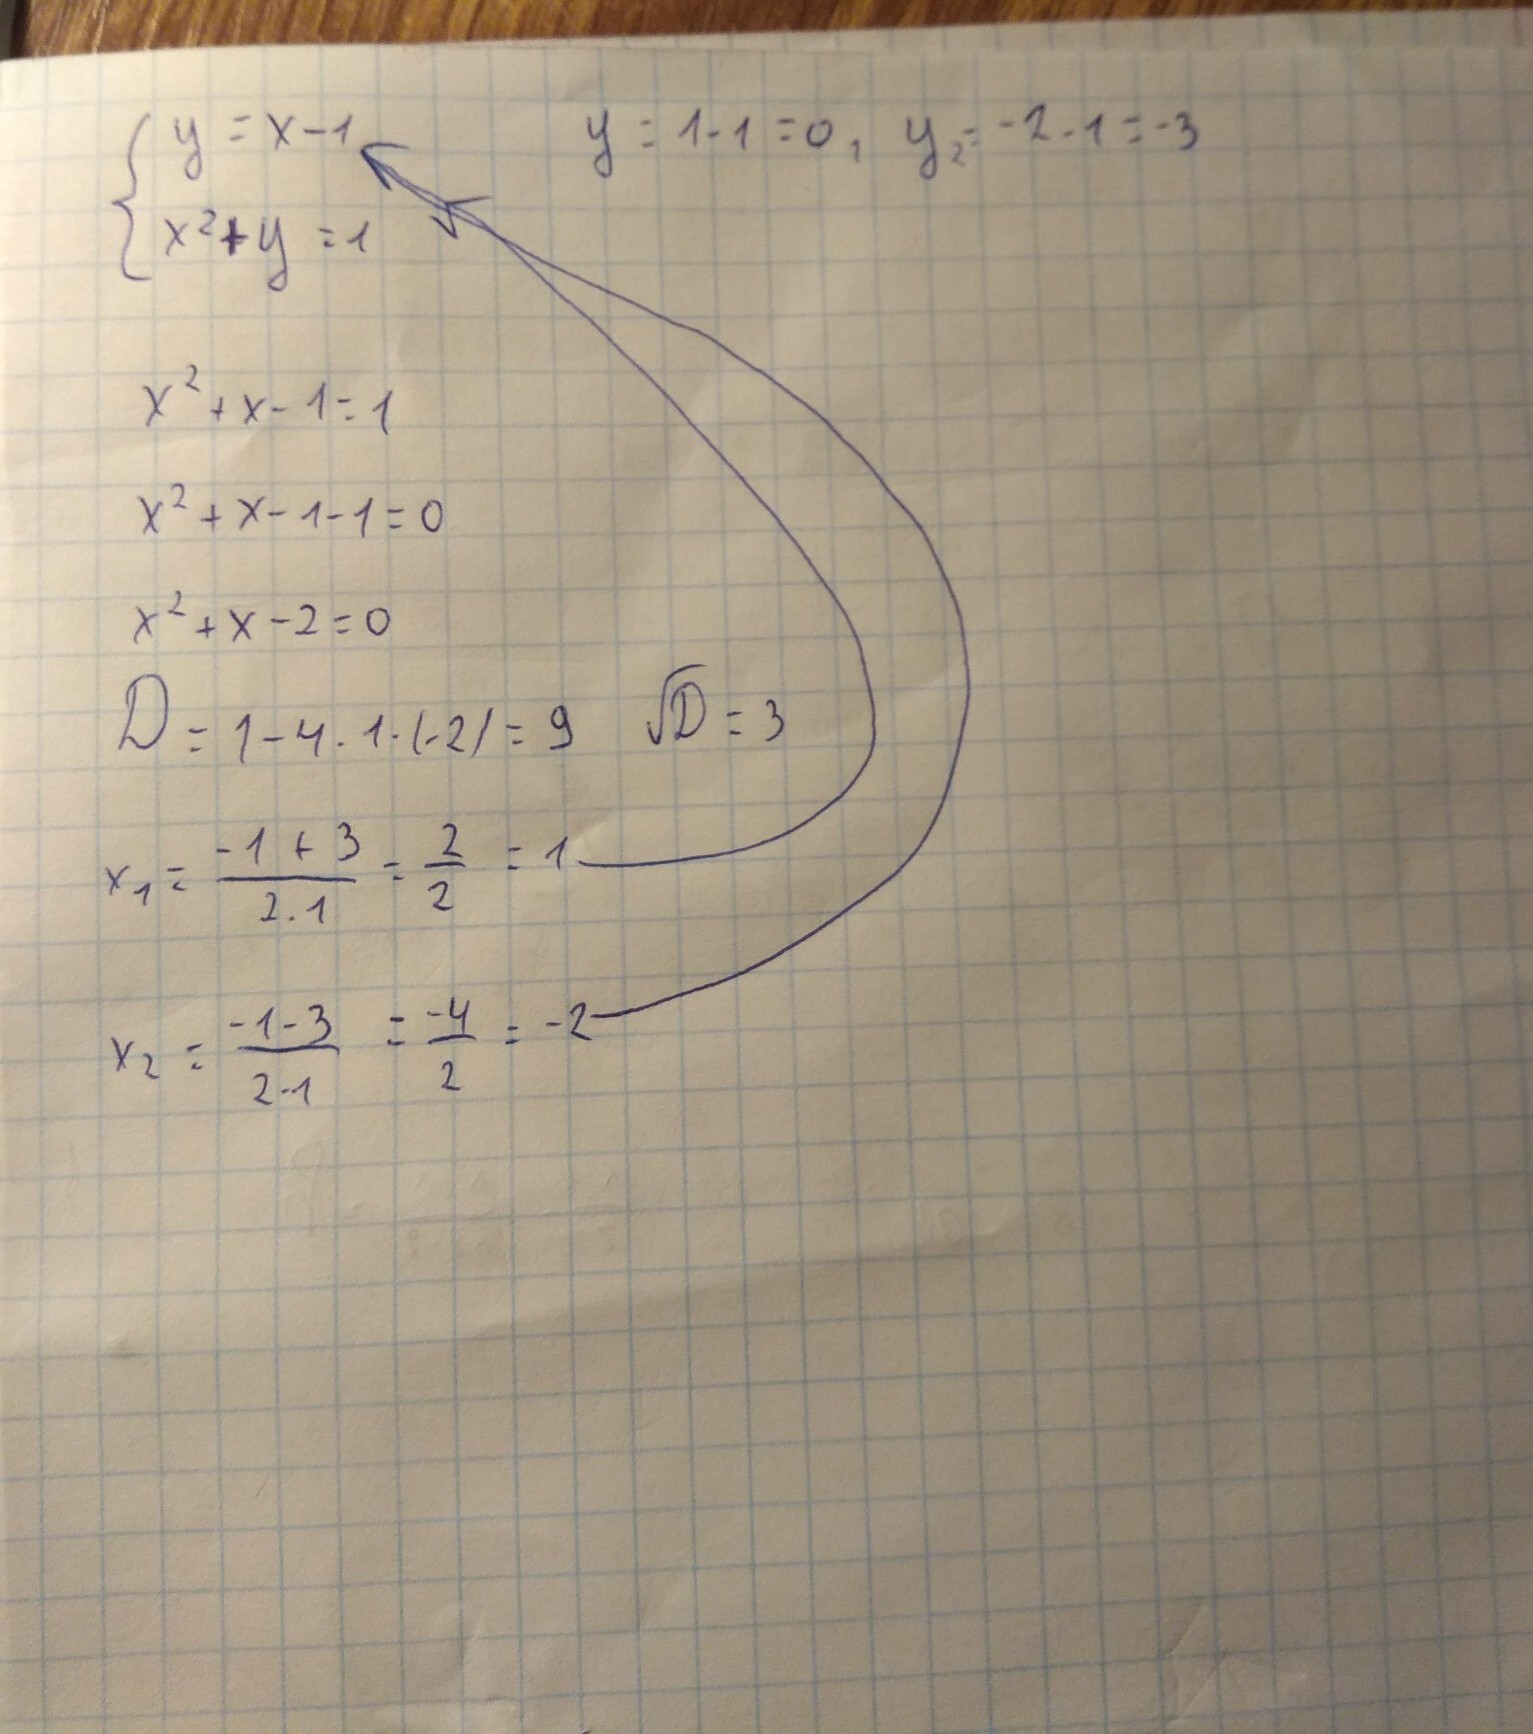 y = x-1    y = 1-1=0, y₂= -2-1=-3
x²+y=1
x²+x-1=1
x²+x-1-1=0
x²+x-2=0
D = 1-4·1·(-2)=9    √D=3
x₁ = (-1+3)/(2·1) = 2/2 = 1
x₂ = (-1-3)/(2·1) = -4/2 = -2